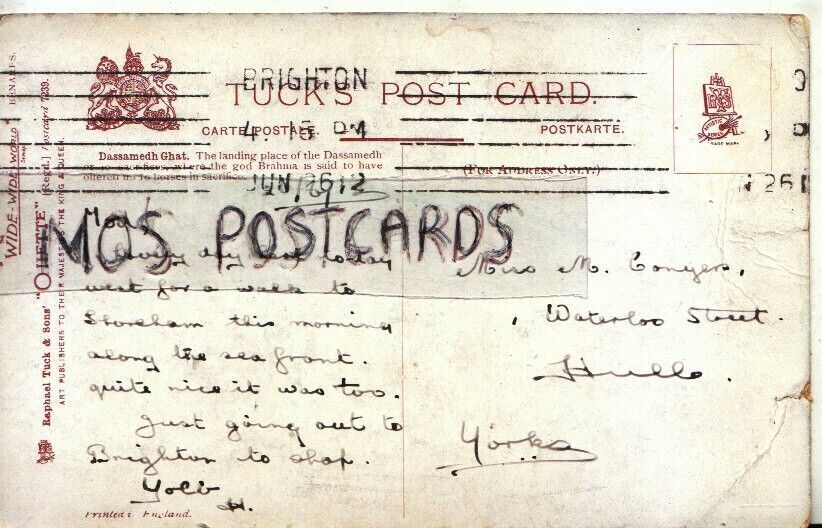 BRIGHTON
4. 15 PM
JUN 26 12
TUCK'S POST CARD.
CARTE POSTALE.
POSTKARTE.
(FOR ADDRESS ONLY.)
TRADE MARK
Dassamedh Ghat. The landing place of the Dassamedh
or 10 sacrifices, where the god Brahma is said to have
offered up 10 horses in sacrifice.
"WIDE-WIDE-WORLD" BENARES.
Raphael Tuck & Sons' "OILETTE" [Regd.] Postcard 7239.
ART PUBLISHERS TO THEIR MAJESTIES THE KING & QUEEN.
MO'S POSTCARDS
day today
went for a walk to
Shoreham this morning
along the sea front.
quite nice it was too.
Just going out to
Brighton to shop.
H.
Miss M. Conyers,
Waterloo Street.
Hull.
Yorks
Printed in England.